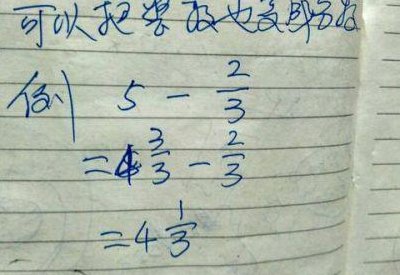 可以把整数也变成分数
例 5 - 2/3
= 4 3/3 - 2/3
= 4 1/3